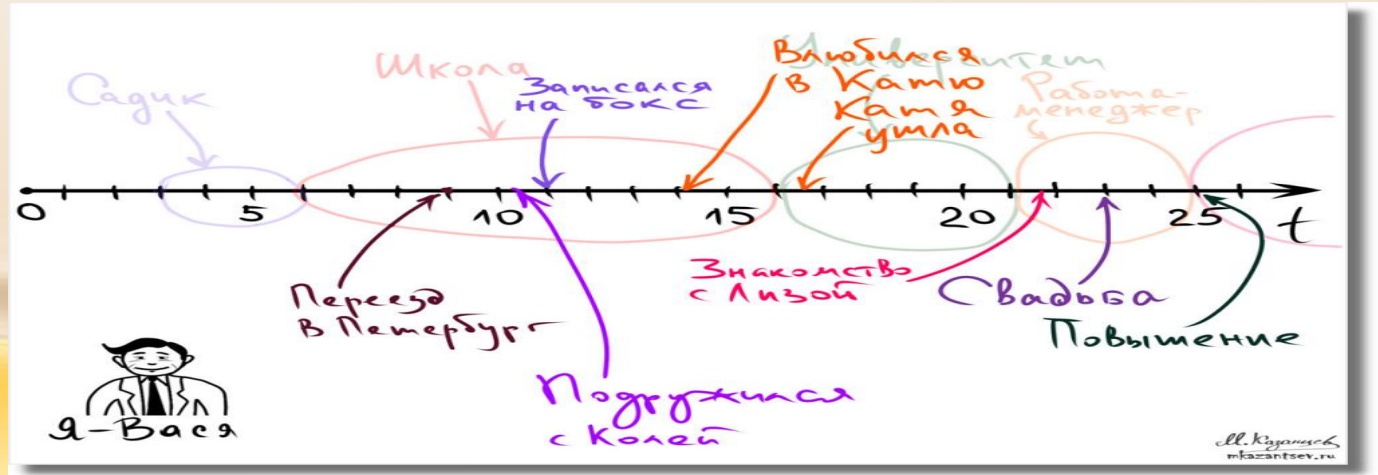 Садик
Школа
Записался
на бокс
Влюбился
в Катю
Катя
ушла
Университет
Работа-
менеджер
0 5 10 15 20 25 t
Переезд
в Петербург
Подружился
с Колей
Знакомство
с Лизой
Свадьба
Повышение
Я-Вася
М. Казанцев
mkazantsev.ru